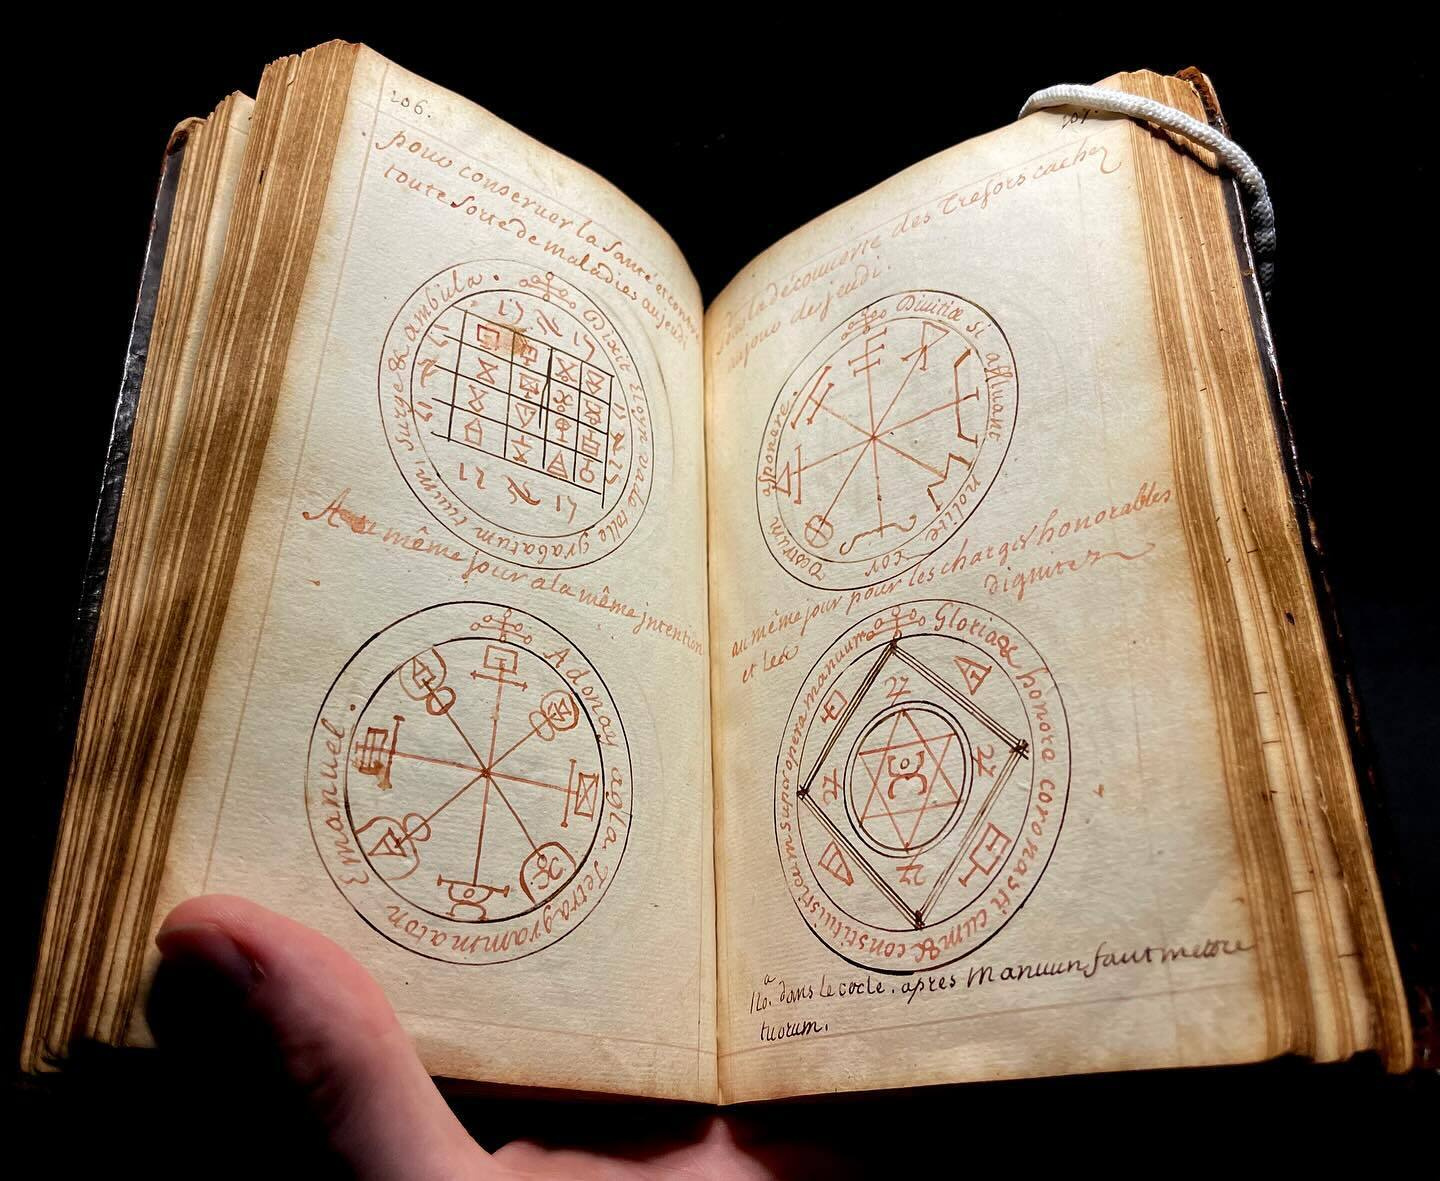 206.
pour conseruer la Santé et contre
toute Sorte de maladies au jeudi
Dixit Eloyn vade tolle grabatum tuum, surge & ambula.
Au même jour a la même jntention
Adonay agla Tetragrammaton Emanuel.
207.
la découuerte des tresors cachez
au jour de jeudi.
Divitiæ si affluant nolite cor vostrum apponere.
au même jour pour les charges honorables
et les dignitez
Gloria & honore coronasti eum & constituisti eum super opera manuum
Na. dans le cercle. apres manuum faut mettre
tuorum.